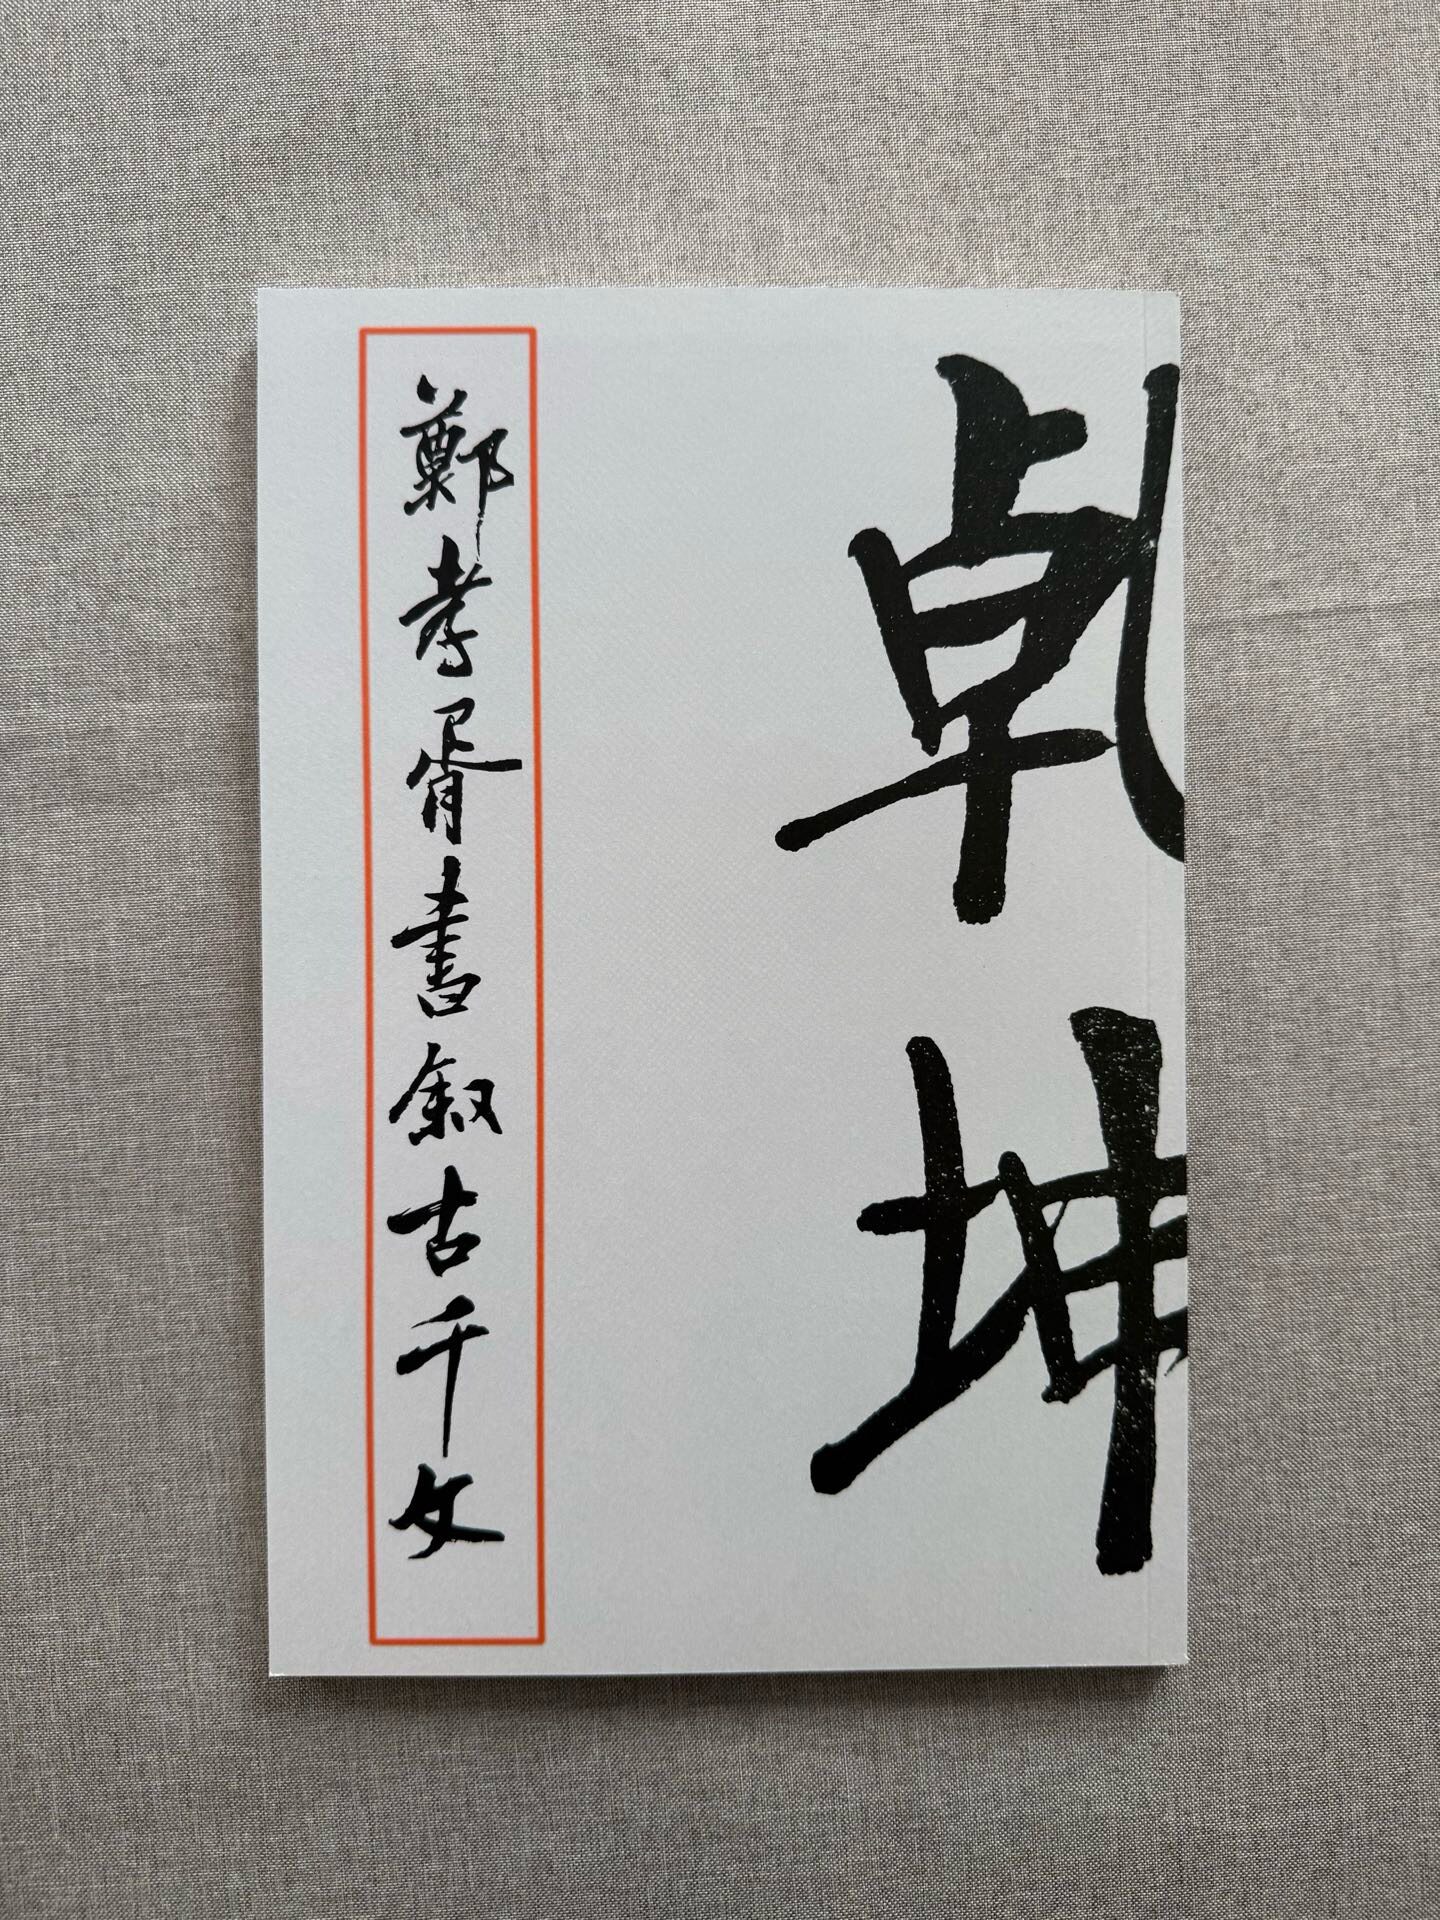 乹坤
鄭孝胥書叙古千文